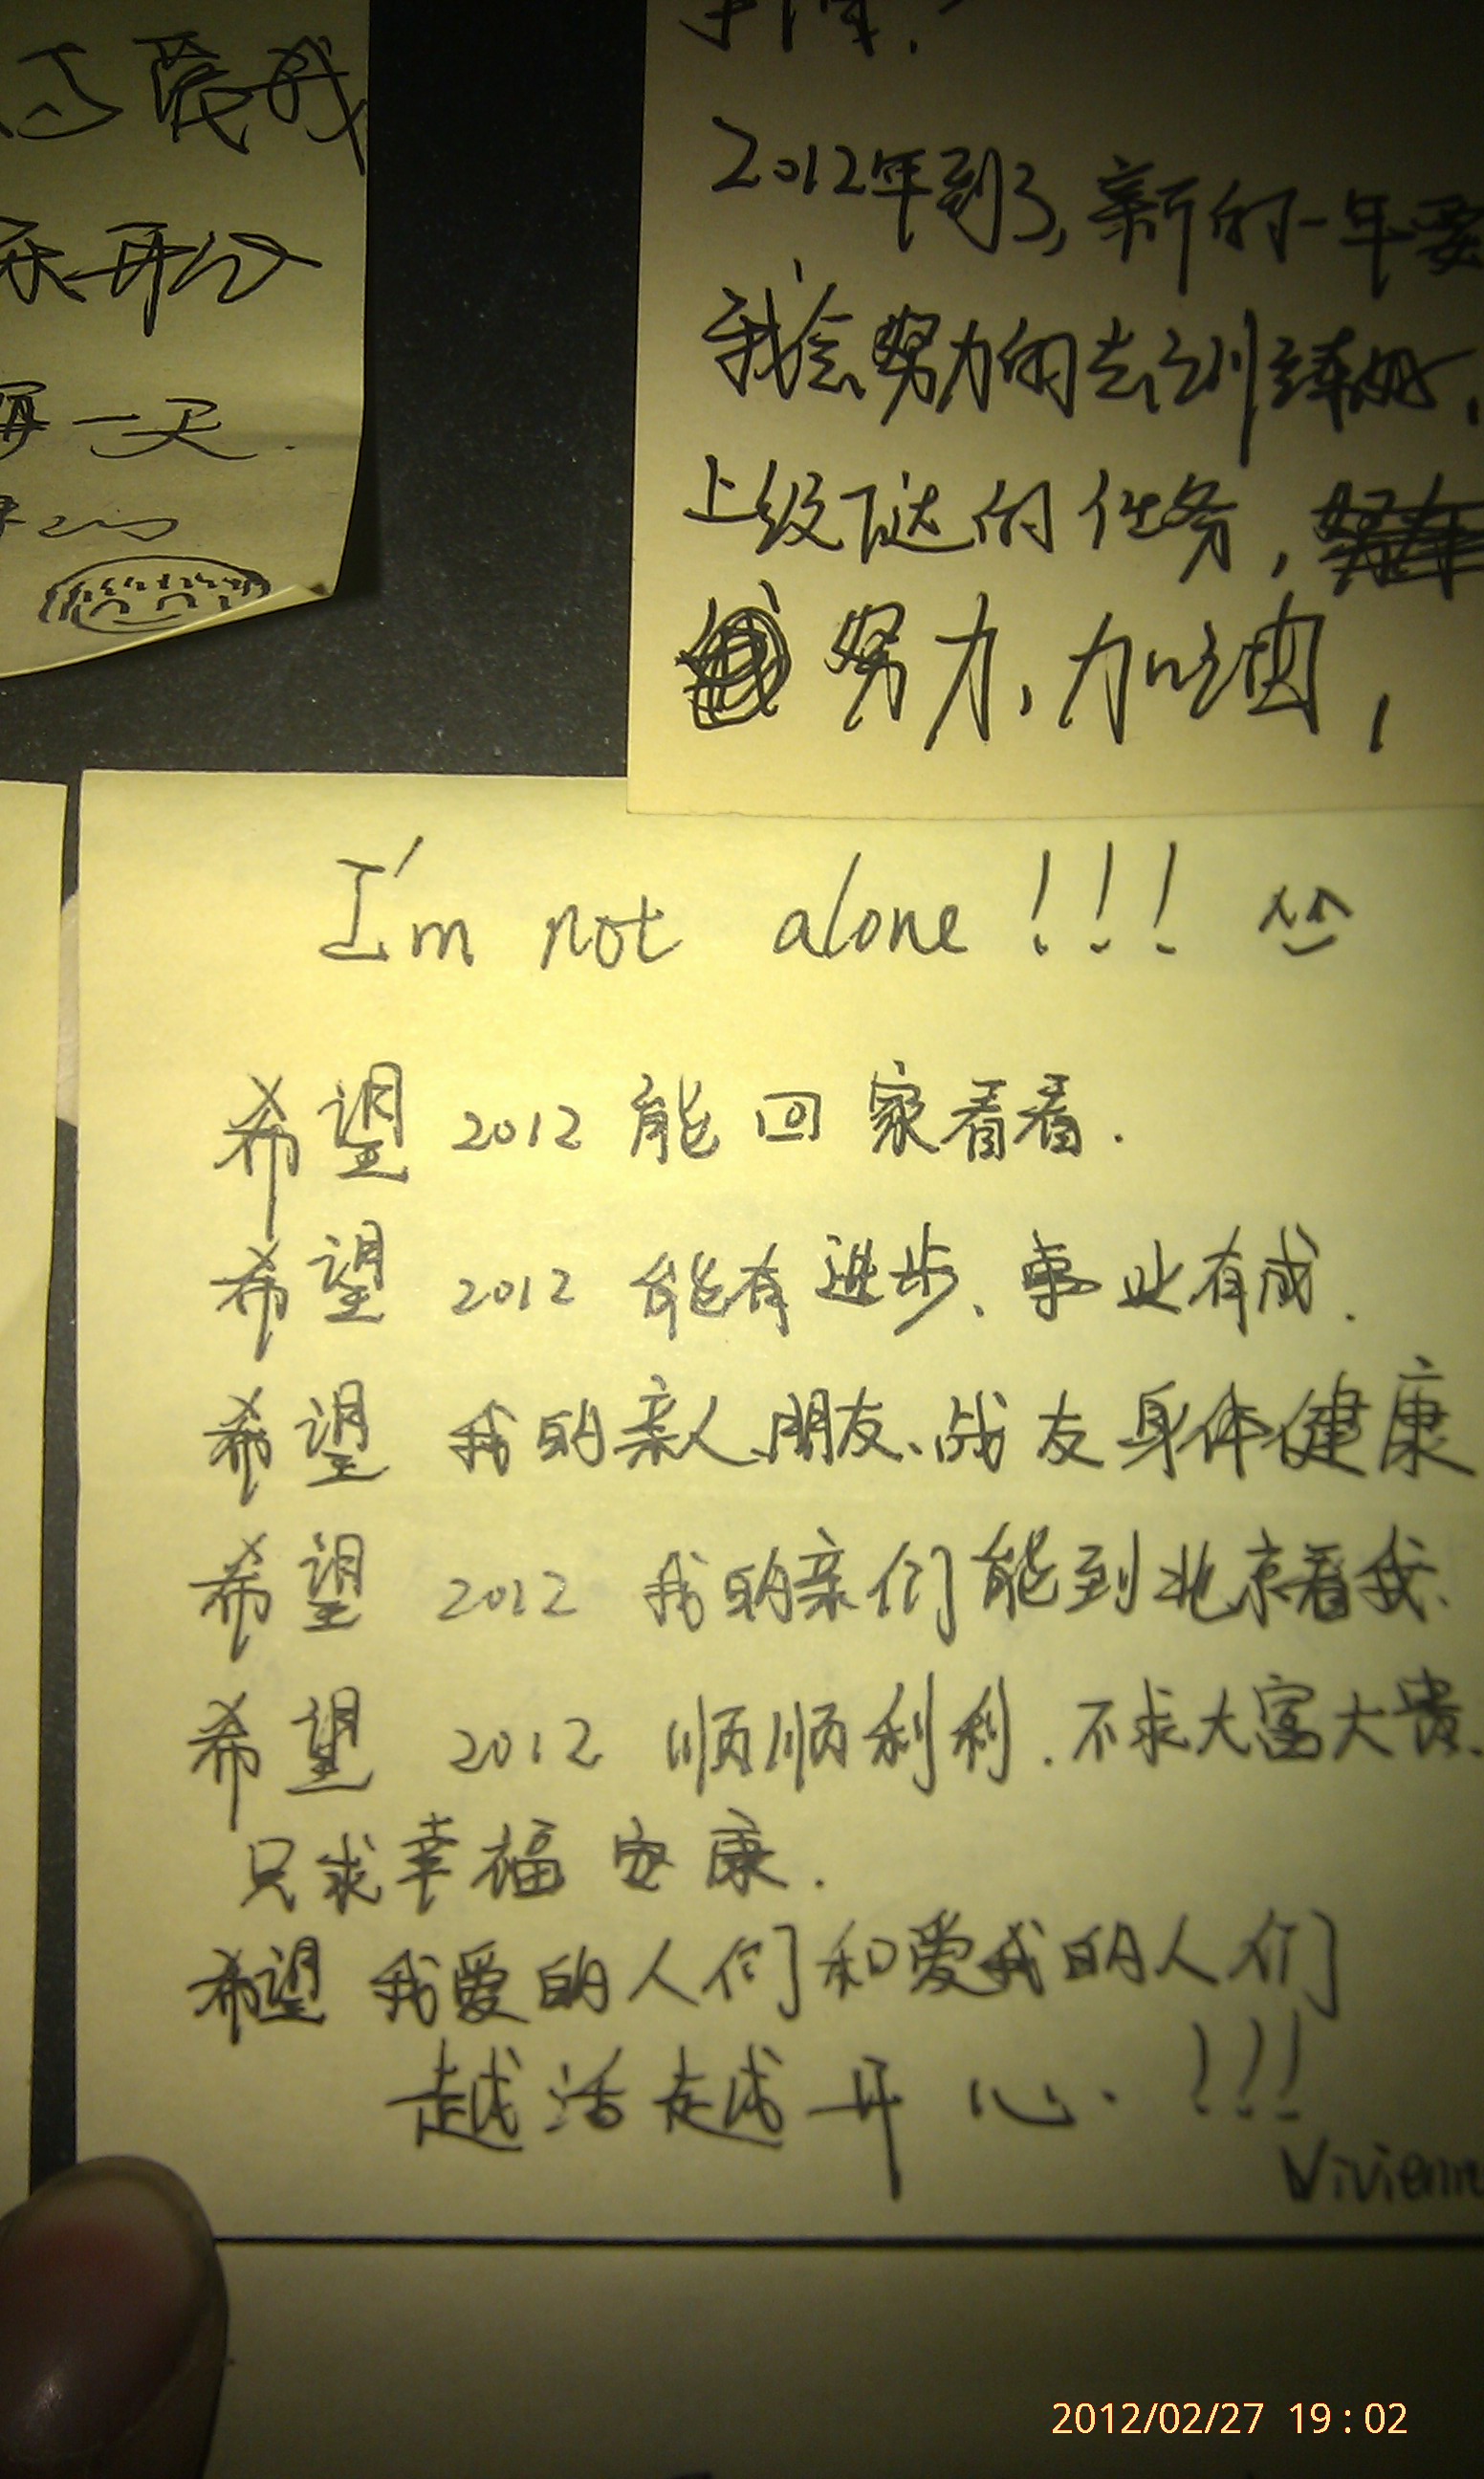 爱我
再分
每一天.
2012年到了,新的一年要
我会努力的去训练好,
上级下达的任务,
努力,加油,
I'm not alone!!!
希望 2012 能回家看看.
希望 2012 能有进步、事业有成.
希望 我的亲人、朋友、战友身体健康
希望 2012 我的亲们能到北京看我、
希望 2012 顺顺利利.不求大富大贵、
只求幸福安康.
希望 我爱的人们和爱我的人们
越活越开心.!!!
Vivienne
2012/02/27 19:02